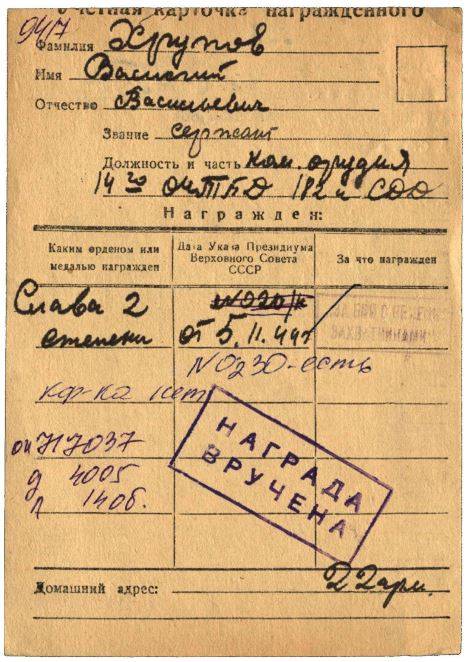 Учетная карточка награжденного
9417
Фамилия Хрупов
Имя Василий
Отчество Васильевич
Звание сержант
Должность и часть Ком. орудия
14го ОИПТД 182й СД
Награжден:
Каким орденом или медалью награжден
Дата Указа Президиума Верховного Совета СССР
За что награжден
Слава 2
степени
от 5.11.44г
№0230-есть
кар-ка нет
оп 717037
д 4005
л 140б.
НАГРАДА
ВРУЧЕНА
Домашний адрес:
22 арм.